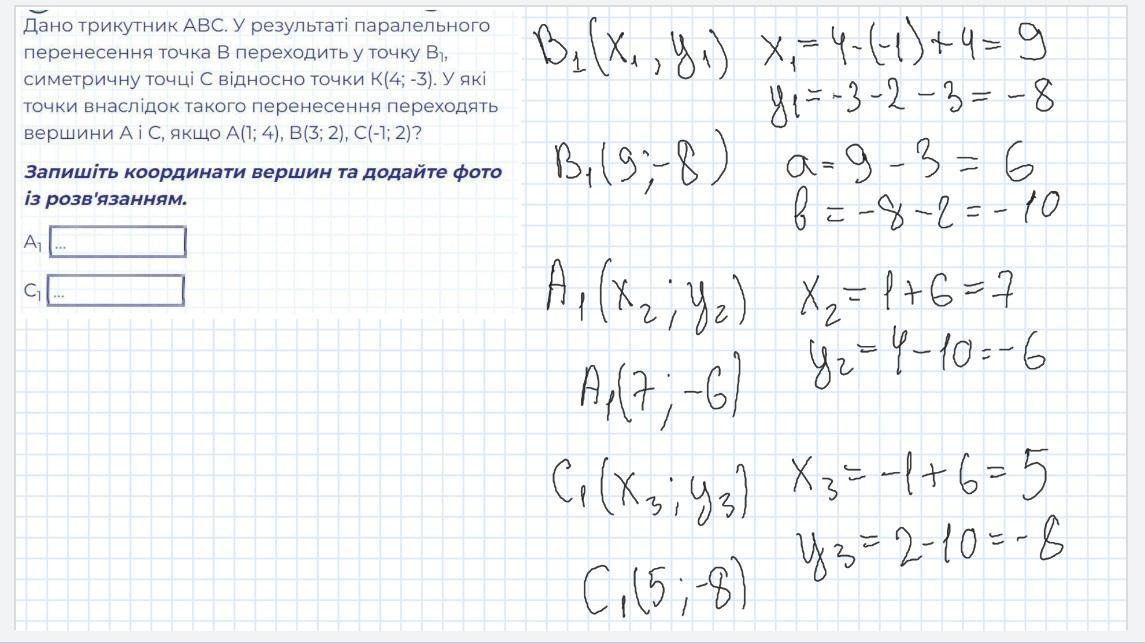 Дано трикутник ABC. У результаті паралельного
перенесення точка B переходить у точку B₁,
симетричну точці C відносно точки K(4; -3). У які
точки внаслідок такого перенесення переходять
вершини A і C, якщо A(1; 4), B(3; 2), C(-1; 2)?
Запишіть координати вершин та додайте фото
із розв'язанням.
A₁ ...
C₁ ...
B₁(x₁, y₁) x₁ = 4-(-1)+4 = 9
y₁ = -3-2-3 = -8
B₁(9;-8) a = 9-3 = 6
b = -8-2 = -10
A₁(x₂; y₂) x₂ = 1+6 = 7
y₂ = 4-10 = -6
A₁(7; -6)
C₁(x₃; y₃) x₃ = -1+6 = 5
y₃ = 2-10 = -8
C₁(5; -8)